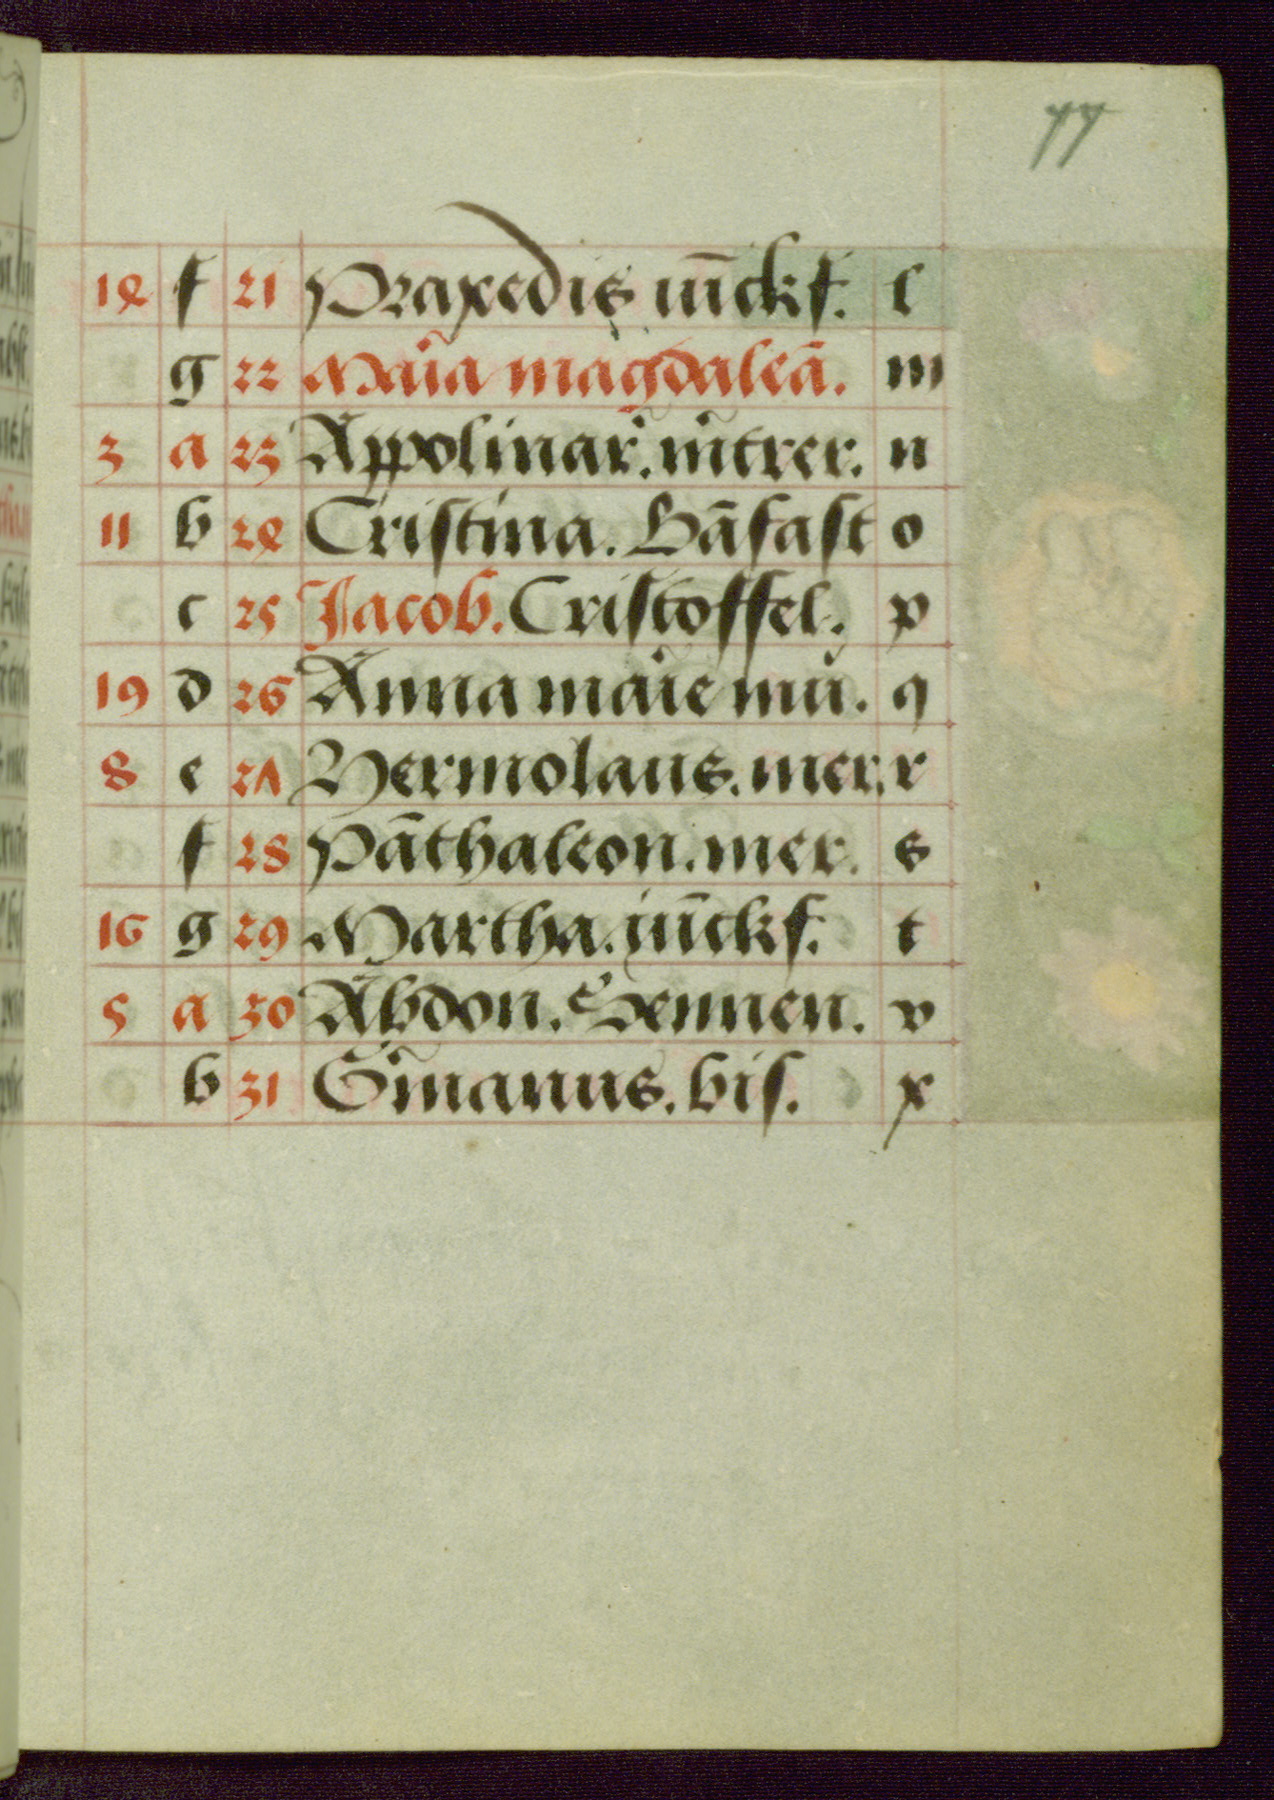 77
14 f 21 Praxedis iūckf. l
g 22 Maria magdaleā. m
3 a 23 Appolinar. mrer. n
11 b 24 Cristina. Bāfast o
c 25 Jacob. Cristoffel. p
19 d 26 Anna marie mū. q
8 e 27 Hermolaus. mer. r
f 28 Pāthaleon. mer. s
16 g 29 Martha. jūckf. t
5 a 30 Abdon. Sennen. v
b 31 Gmanus. bis. x